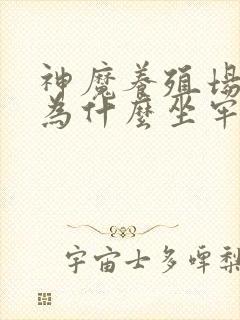 神魔養殖場
為什麼坐牢
宇宙士多啤梨